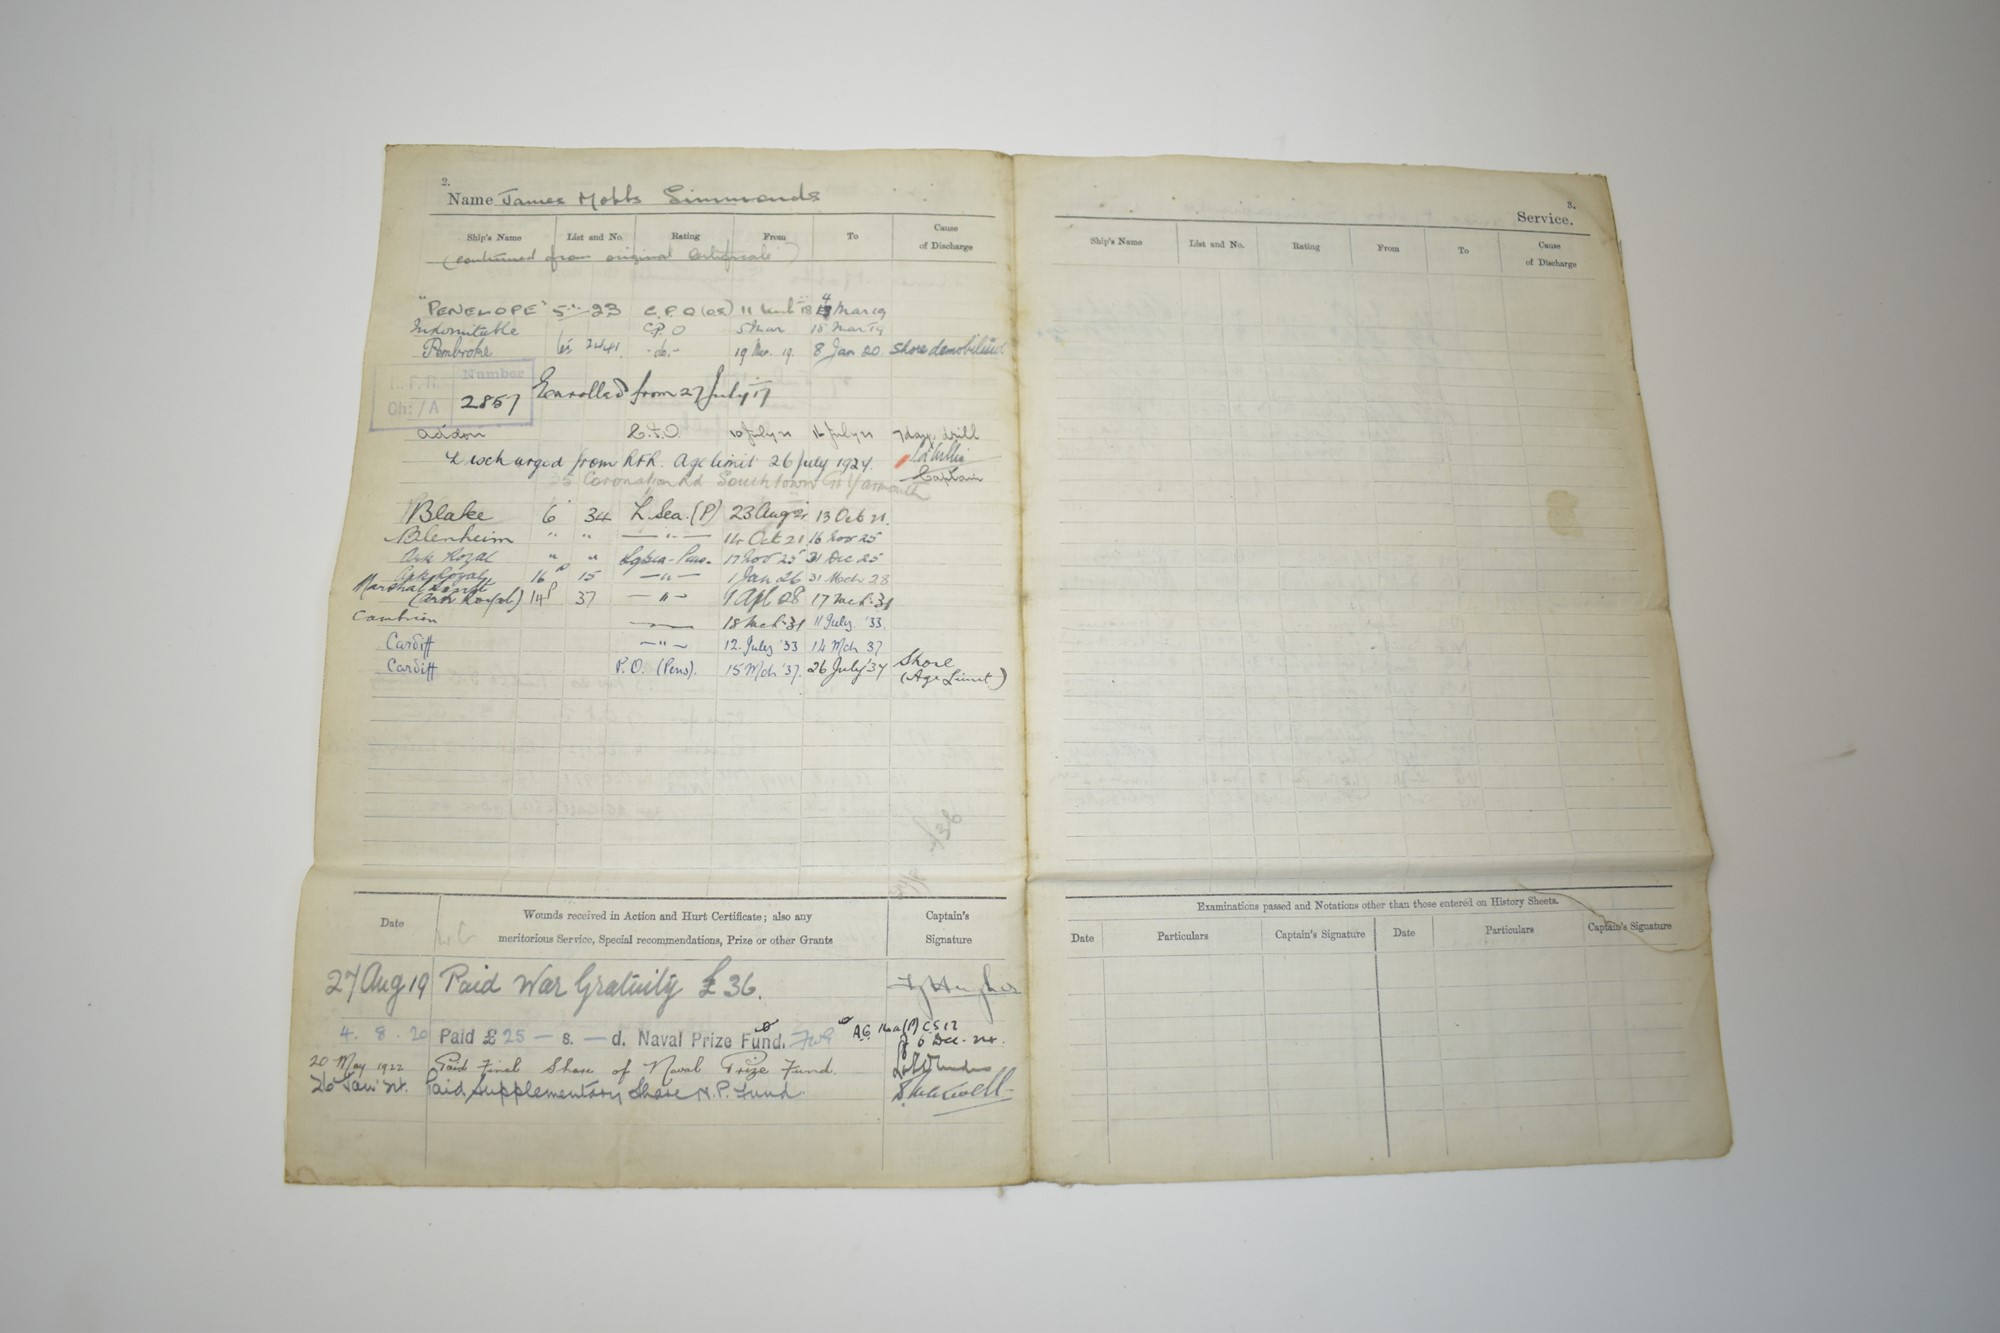 2.
Name James Mobbs Simmonds
Ship's Name List and No. Rating From To Cause of Discharge
(continued from original Certificate)
"PENELOPE" 5 23 C.P.O 11 18 4 Mar 19
Indomitable CPO 5 Mar 18 Mar 19
Pembroke 2441 -do.- 19 Mar. 19. 8 Jan 20 Shore demobilised
R.F.R. Number
Ch: / A 2857 Enrolled from 27 July 17
10 July 21 16 July 21 7 days drill
Discharged from RFR. Age limit 26 July 1924.
Captain
25 Coronation Rd Southtown Gt Yarmouth
Blake 6 34 L. Sea. (P) 23 Aug 21 13 Oct 21.
Blenheim " " — " — 14 Oct 21 16 Nov 25
Ark Royal " " Ldg Sea - Pens. 17 Nov 25 31 Dec 25
Ark Royal 16 15 — " — 1 Jan 26 31 Mch 28
Marshal Soult
(Ark Royal) 14 37 — " — 1 Apl 28 17 Mch 31
Cambrian 18 Mch 31 11 July. '33.
Cardiff — " — 12. July '33 14 Mch 37
Cardiff P.O. (Pens). 15 Mch '37. 26 July '37 Shore
(Age Limit)
Date Wounds received in Action and Hurt Certificate; also any meritorious Service, Special recommendations, Prize or other Grants Captain's Signature
27 Aug 19 Paid War Gratuity £ 36.
4. 8. 20 Paid £ 25 — s. — d. Naval Prize Fund.
20 May 1922 Paid Final Share of Naval Prize Fund.
26 Jan Paid Supplementary Share N.P. Fund.
3.
Service.
Ship's Name List and No. Rating From To Cause of Discharge
Examinations passed and Notations other than those entered on History Sheets.
Date Particulars Captain's Signature Date Particulars Captain's Signature